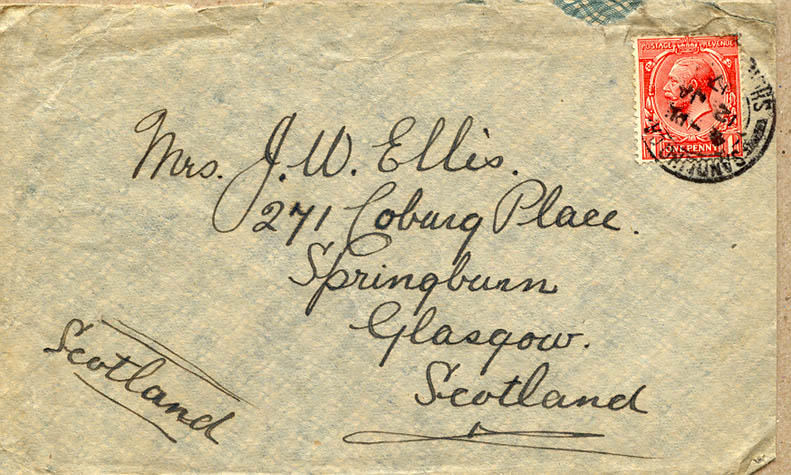 POSTAGE REVENUE
ONE PENNY
JA
17
Mrs. J. W. Ellis.
271 Coburg Place.
Springburn
Glasgow.
Scotland
Scotland